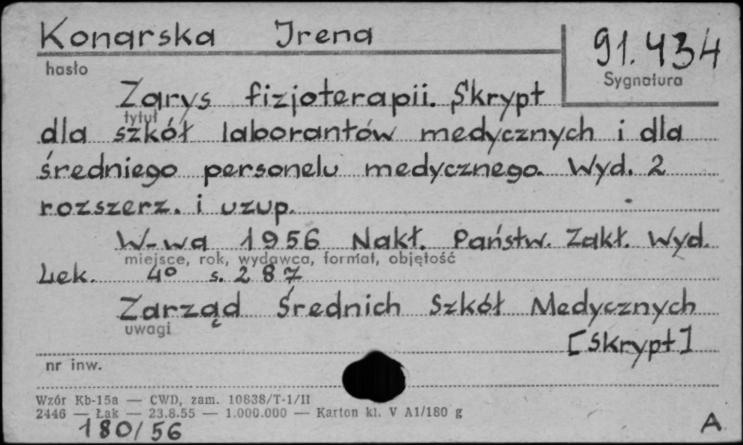 Konarska Irena
91.434
hasło
Sygnatura
Zarys fizjoterapii. Skrypt
tytuł
dla szkół laborantów medycznych i dla
średniego personelu medycznego. Wyd. 2
rozszerz. i uzup.
W-wa 1956 Nakł. Państw. Zakł. Wyd.
miejsce, rok, wydawca, format, objętość
Lek. 4° s. 287
Zarząd Średnich Szkół Medycznych
uwagi
[Skrypt]
nr inw.
Wzór Kb-15a — CWD, zam. 10838/T-1/II
2446 — Łak — 23.8.55 — 1.000.000 — Karton kl. V A1/180 g
180/56
A